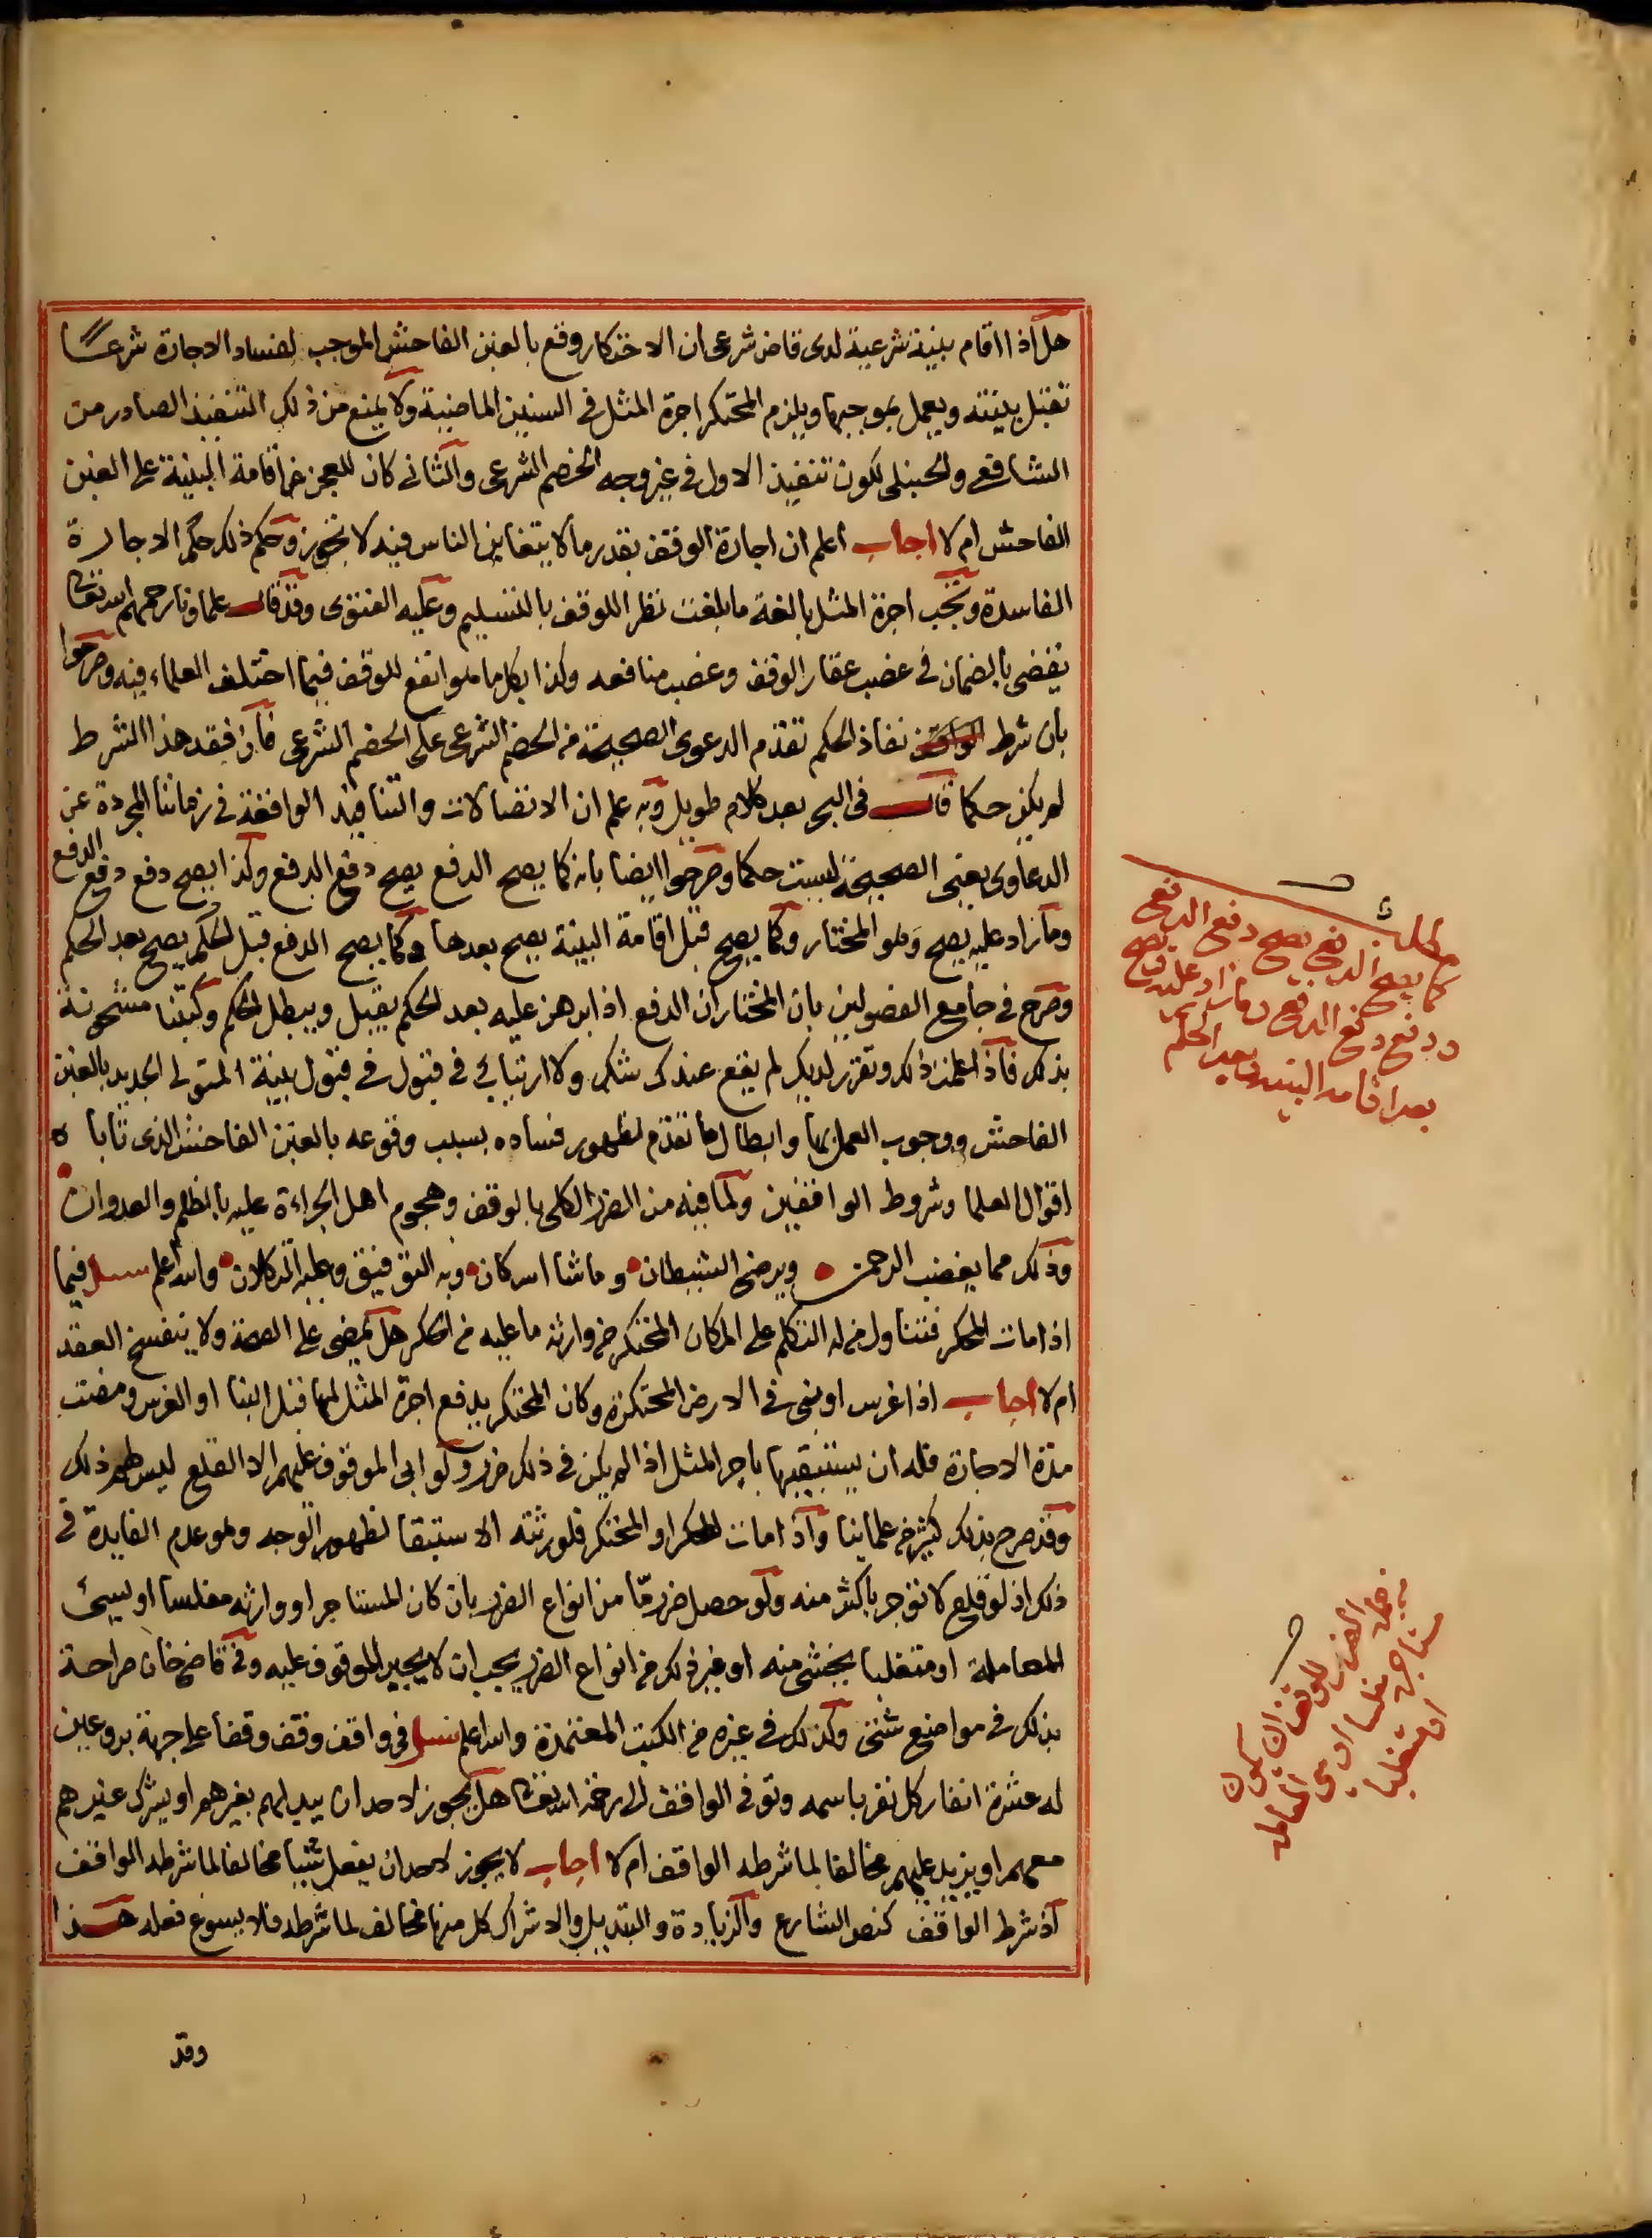 هل اذا اقام بينة شرعية لدى قاض شرعى ان الاحتكار وقع بالغبن الفاحش الموجب لفساد الاجارة شرعا
تقبل بينته ويعمل بموجبها ويلزم المحتكر اجرة المثل فى السنين الماضية ولا يمنع من ذلك التنفيذ الصادر من
الشافعى والحنبلى لكون تنفيذ الاول فى غير وجه الخصم الشرعى والثانى كان للعجز عن اقامة البينة على الغبن
الفاحش ام لا اجاب اعلم ان اجارة الوقف بقدر ما لا يتغابن الناس فيه لا تجوز وحكم ذلك حكم الاجارة
الفاسدة وتجب اجرة المثل بالغة ما بلغت نظرا للوقف بالتسليم وعليه الفتوى وقد قال علماونا رحمهم الله تعالى
يفضى بالضمان فى غصب عقار الوقف وغصب منافعه وكذا بكل ما هو انفع للوقف فيما اختلف العلماء فيه وصرحوا
بان شرط نفاذ الحكم تقدم الدعوى الصحيحة من الخصم الشرعى على الخصم الشرعى فاذا فقد هذا الشرط
لم يكن حكما قال فى البحر بعد كلام طويل وبه علم ان الاتصالات والتنافيذ الواقعة فى زماننا المجردة عن
الدعاوى يعنى الصحيحة ليست حكما وصرحوا ايضا بانه كما يصح الدفع يصح دفع الدفع وكذا يصح دفع دفع الدفع
وما زاد عليه يصح وهو المختار وكما يصح قبل اقامة البينة يصح بعدها وكما يصح الدفع قبل الحكم يصح بعد الحكم
وصرح فى جامع الفصولين بان المختار ان الدفع اذا برهن عليه بعد الحكم يقبل ويبطل الحكم وكتبنا مشحونة
بذلك فاذا علمت ذلك وتقرر لديك لم يقع عندك شك ولا ارتياب فى قبول فى قبول بينة المتولى الجديد بالغبن
الفاحش ووجوب العمل بها وابطال ما تقدم لظهور فساده بسبب وقوعه بالغبن الفاحش الذى تاباه
اقوال العلما وشروط الواقفين ولما فيه من الضرر الكلى بالوقف وهجوم اهل الجراءة عليه بالظلم والعدوان
وذلك مما يغضب الرحمن ويرضى الشيطان وما شا الله كان وبه التوفيق وعليه التكلان والله اعلم سئل فيما
اذا مات المحكر فتناول من له التكلم على المكان المحتكر من وارثه ما عليه من الحكر هل يمضى على الصحة ولا ينفسخ العقد
ام لا اجاب اذا غرس او بنى فى الارض المحتكرة وكان المحتكر يدفع اجرة المثل لها قبل البنا او الغرس ومضت
مدة الاجارة فله ان يستبقيها باجر المثل اذا لم يكن فى ذلك ضرر ولو ابى الموقوف عليهم الا القلع ليس لهم ذلك
وقد صرح بذلك كثير من علماينا واذا مات المحكر او المحتكر فلورثته الاستبقا لظهور الوجه وهو عدم الفايدة فى
ذلك اذ لو قلع لا توجر باكثر منه ولو حصل ضرر ما من انواع الضرر بان كان المستاجر او وارثه مفلسا او سيئ
المعاملة او متغلبا يخشى منه او غير ذلك من انواع الضرر يجب ان لا يجبر الموقوف عليه وفى قاضى خان صراحة
بذلك فى مواضع شتى وكذلك فى غيره من الكتب المعتمدة والله اعلم سئل فى واقف وقف وقفا على جهة بر وعين
له عشرة انفار كل نفر باسمه وتوفى الواقف الى رحمة الله تعالى هل يجوز لاحد ان يبدلهم بغيرهم او يشرك غيرهم
معهم او يزيد عليهم مخالفا لما شرطه الواقف ام لا اجاب لا يجوز لاحد ان يفعل شيا مخالفا لما شرطه الواقف
اذ شرط الواقف كنص الشارع والزيادة والتبديل والاشراك كل منها مخالف لما شرطه فلا يسوغ فعله هذا
وقد
مطلب
كما يصح الدفع يصح دفع الدفع
ودفع دفع الدفع وما زاد عليه يصح
بعد اقامة البينة وبعد الحكم
من الضرر للوقف ان يكون
المستاجر مفلسا او سيئ المعاملة
او متغلبا